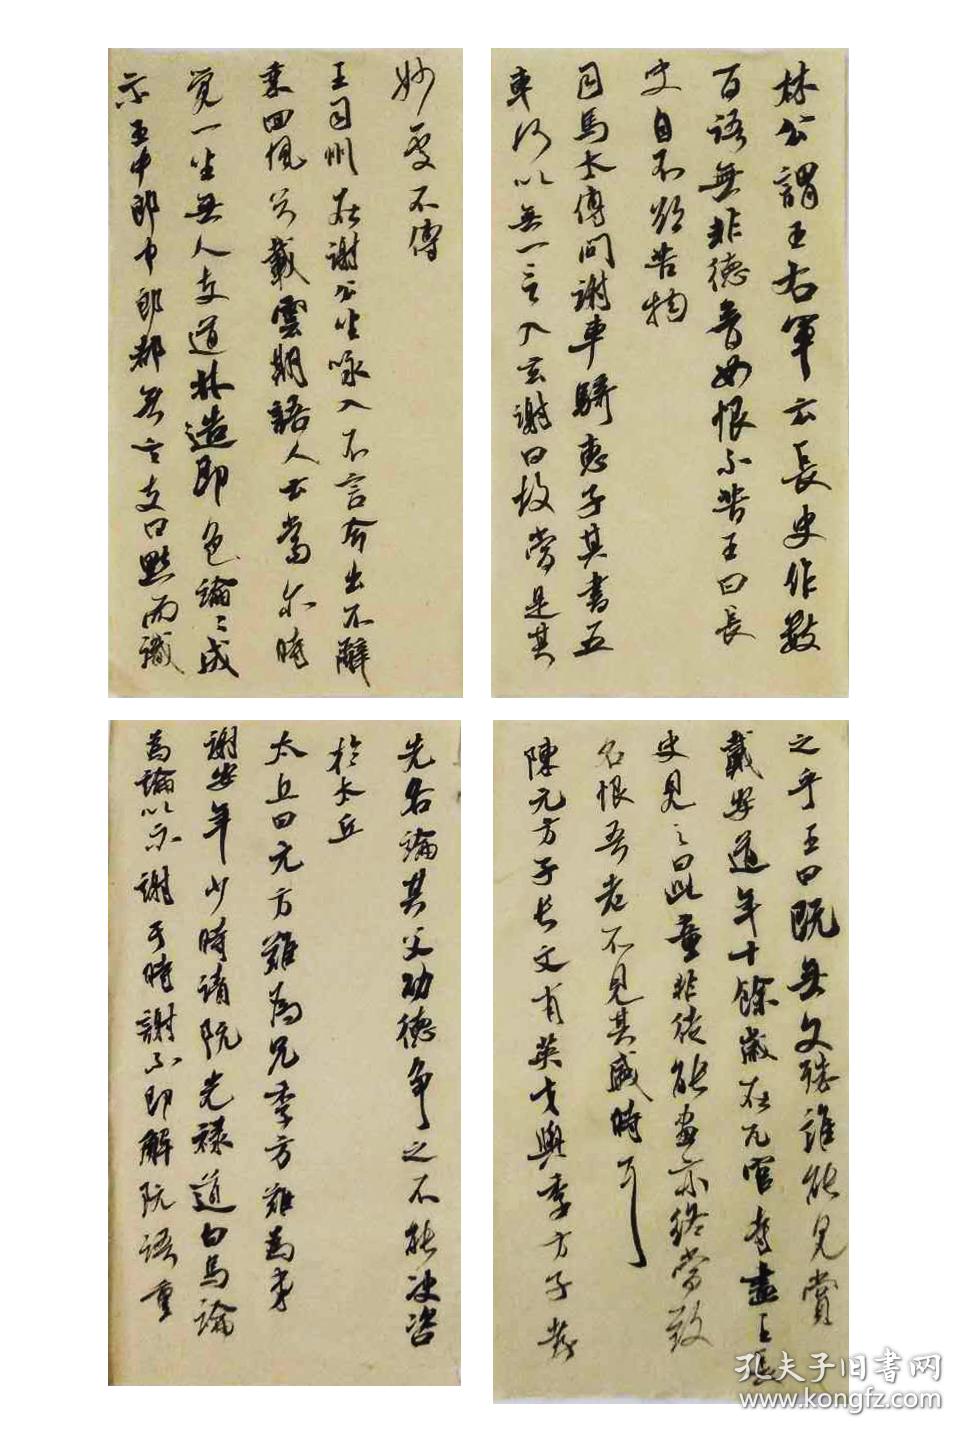 林公謂王右軍云長史作數
百語無非德音如恨不苦王曰長
史自不欲苦物
司馬太傅問謝車騎惠子其書五
車何以無一言入玄謝曰故當是其
妙處不傳
王司州在謝公坐咏入不言兮出不辭
乘回風兮載雲旗語人云當尔時
覺一坐無人支道林造即色論〻成
示王中郎中郎都無言支曰默而識
之乎王曰既無文殊誰能見賞
戴安道年十餘歲在瓦官寺畫王長
史見之曰此童非徒能畫亦終當致
名恨吾老不見其盛時耳
陳元方子長文有英才與季方子孝
先各論其父功德爭之不能决咨
於太丘
太丘曰元方難為兄季方難為弟
謝安年少時請阮光祿道白馬論
為論以示謝于時謝不即解阮語重
孔夫子旧書网
www.kongfz.com